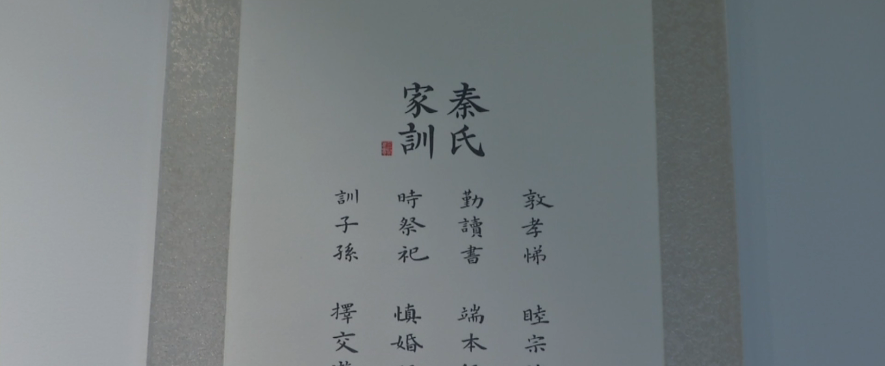 秦氏
家訓
敦孝悌 睦宗
勤讀書 端本
時祭祀 慎婚
訓子孫 擇交